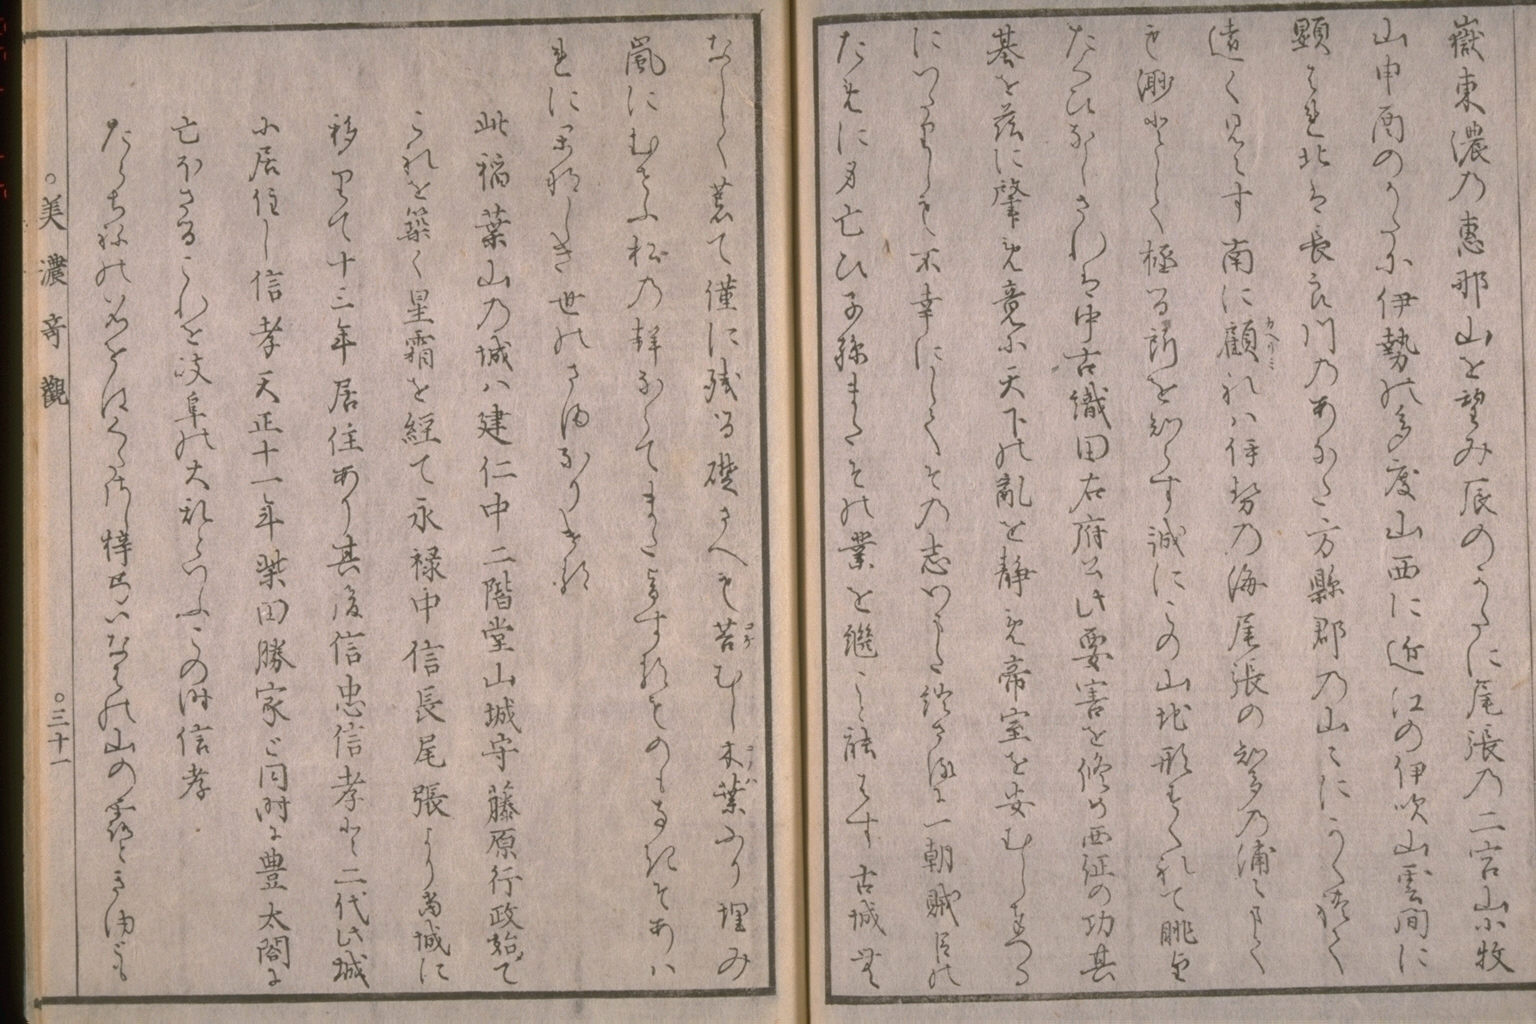 嶽東濃乃恵那山を望み辰のかたに尾張乃二宮山小牧
山申酉のかたに伊勢の多度山西に近江の伊吹山雲間に
顕はれ北は長良川乃あなた方縣郡乃山々にかくれて
遠く見えす南に顧れハ伊勢の海尾張の知多乃浦々まて
も渺として極る所を知らす誠にこの山地形すくれて眺望
たくひなしされは中古織田右府公此要害を修め西征の功其
基を茲に肇め竟に天下の乱を静め帝室を安むしまつる
にいたりしも不幸にしてその志いまた終さるに一朝賊臣の
ために身亡ひ子孫またその業を継こと能はす古城
なしく荒て僅に残る礎さへも苔むし木葉ふり埋み
嵐にむせふ松の声なくてまたおとするものもあらす
れに果敢しき世のさまなりけり
此稲葉山乃城ハ建仁中二階堂山城守藤原行政始て
これを築く星霜を経て永禄中信長尾張より当城に
移りて十三年居住あり其後信忠信孝と二代此城
に居住し信孝天正十一年柴田勝家と同時に豊太閤に
亡ほさるこれを岐阜の大乱といふこの時信孝
たらちねの
美濃奇觀
三十一